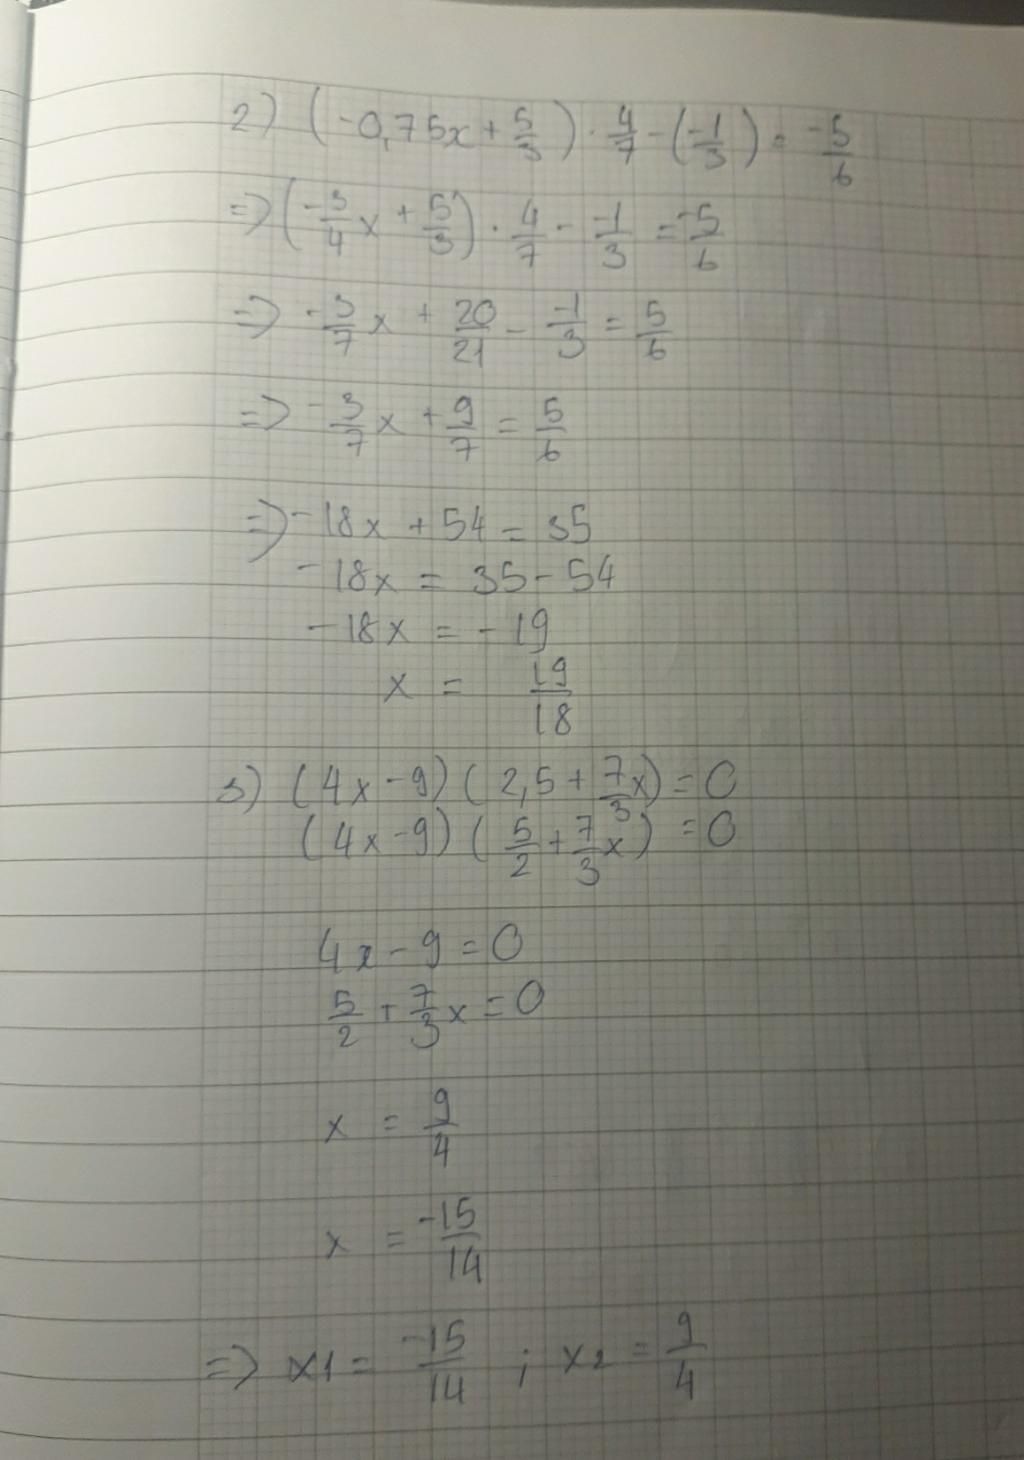 2) (-0,75x + 5/3) · 4/7 - (-1/3) = -5/6
=> (-3/4 x + 5/3) · 4/7 - -1/3 = -5/6
=> -3/7 x + 20/21 - -1/3 = 5/6
=> -3/7 x + 9/7 = 5/6
=> -18x + 54 = 35
-18x = 35 - 54
-18x = -19
x = 19/18
3) (4x - 9) (2,5 + 7/3 x) = 0
(4x - 9) (5/2 + 7/3 x) = 0
4x - 9 = 0
5/2 + 7/3 x = 0
x = 9/4
x = -15/14
=> x1 = -15/14 ; x2 = 9/4